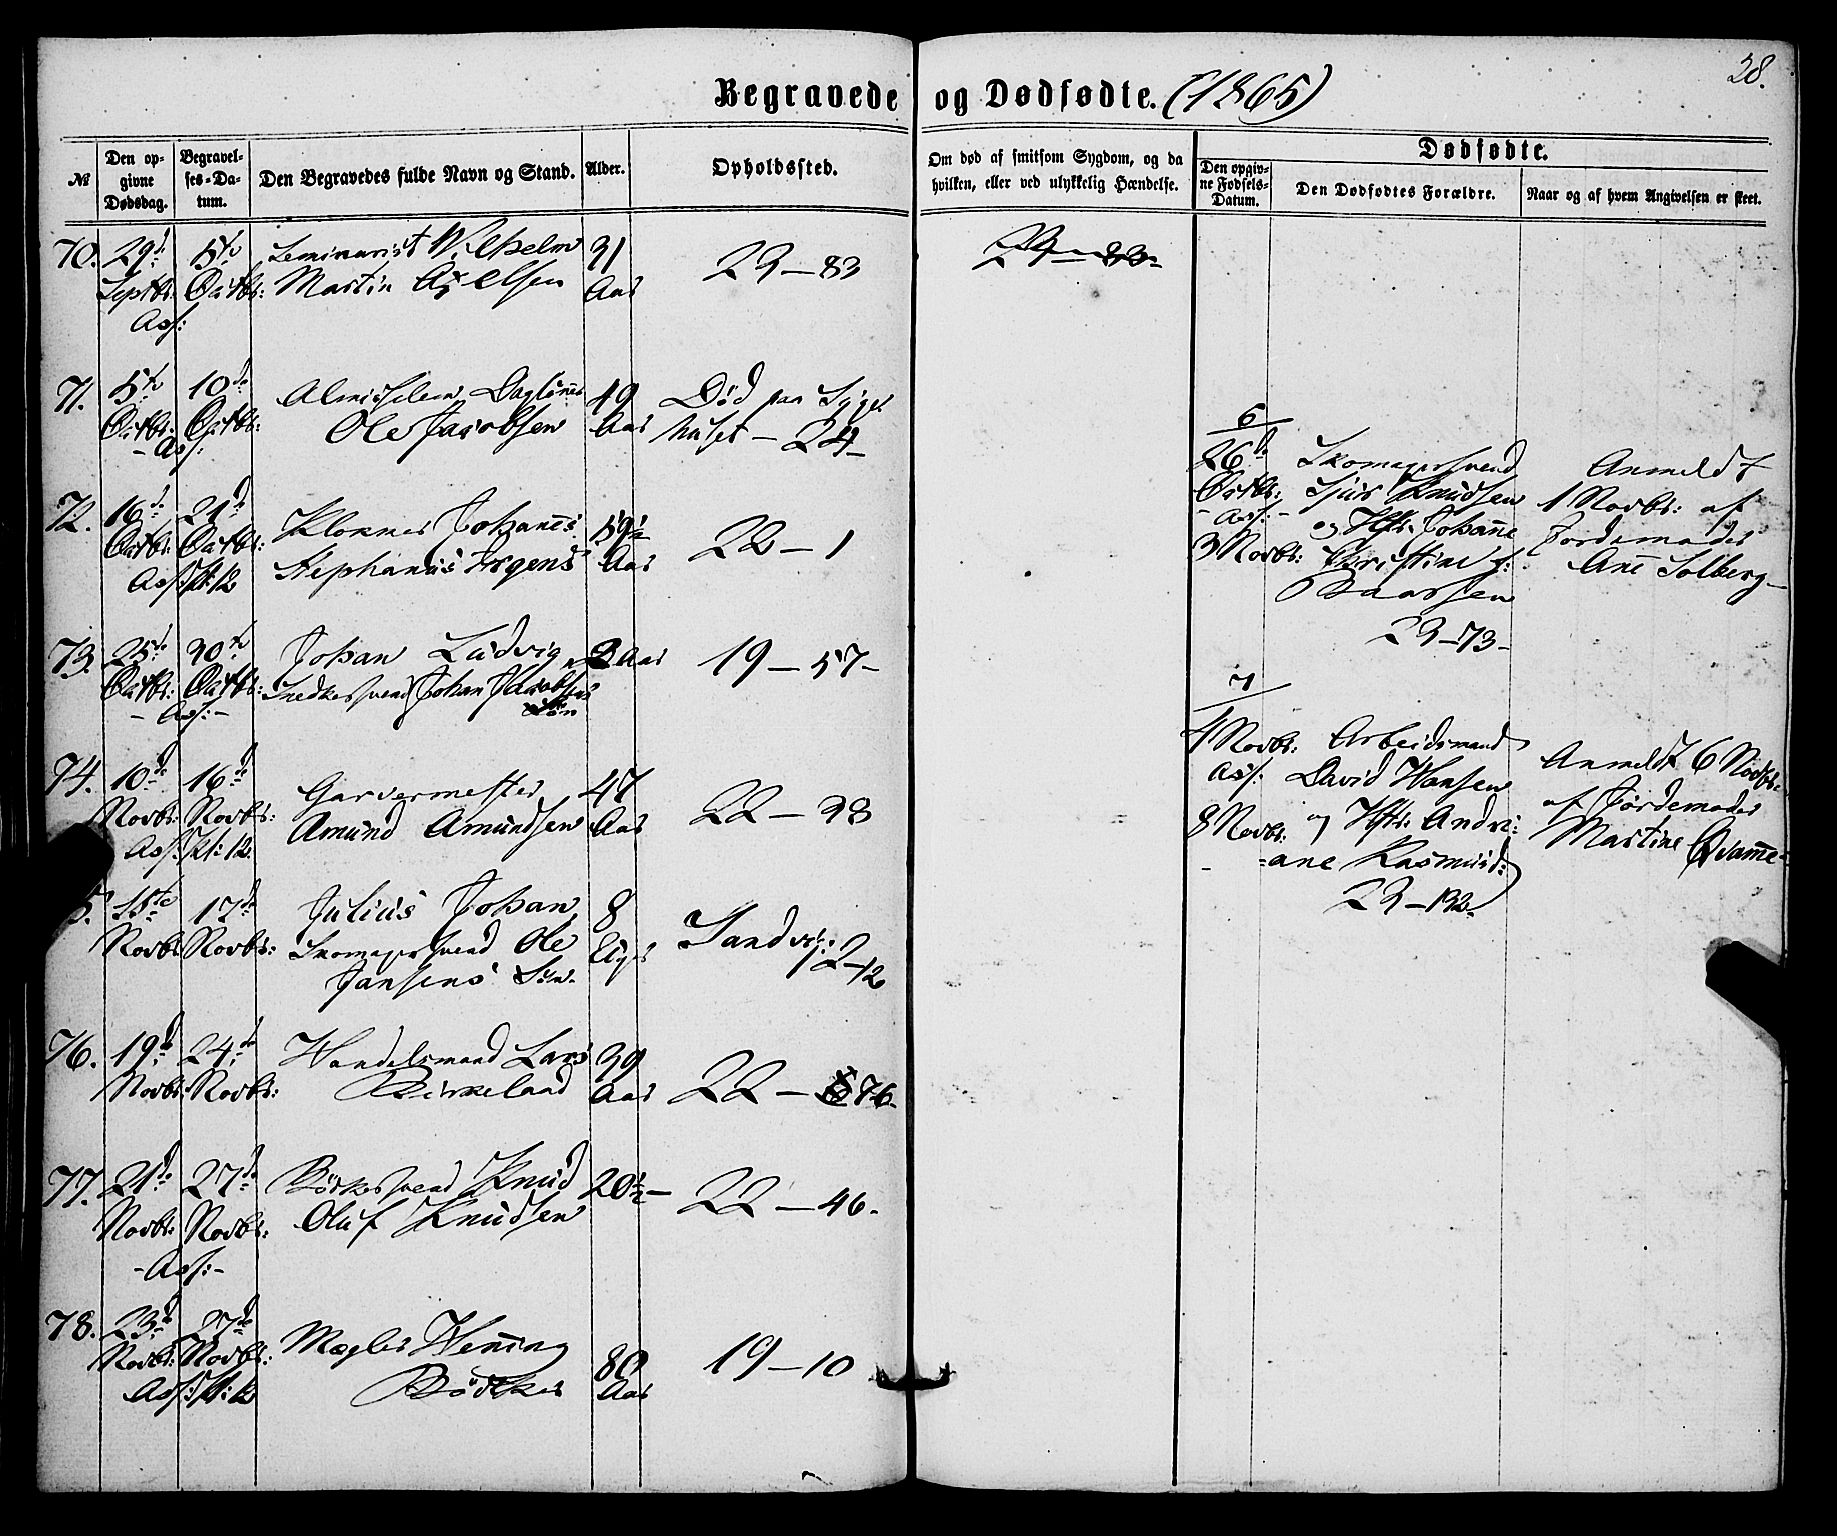 28.
Begravede og Dødfødte. (1865)
№
Den op-
givne
Dødsdag.
Begravel-
ses-Da-
tum.
Den Begravedes fulde Navn og Stand.
Alder.
Opholdssted.
Om død af smitsom Sygdom, og da
hvilken, eller ved ulykkelig Hændelse.
Dødfødte.
Den opgiv-
ne Fødsels-
Datum.
Den Dødfødtes Forældre.
Naar og af hvem Angivelsen er skeet.
70. 29de 5te Seminarist Vilhelm 31 23-83
Septbr: Octbr: Martin Axelsen Aar
Ass:
71. 5te 10de Almisselem Dagløner 49 Død paa Syge-
Octbr: Octbr: Ole Jacobsen Aar huset - 24-
-Ass:
72. 16de 21de Klokker Johannes 59½ 22-1
Octbr: Octbr: Stephanus Irgens Aar
Ass: Kl: 12
73. 25de 30te Johan Ludvig 2 Aar 19-57-
Octbr: Octbr: Snedkersvend Johan Jacobsens
-Ass:- Søn
74. 10de 16de Garvermester 47 22-38
Novbr: Novbr: Amund Amundsen Aar
Ass: Kl: 12
5. 11te 17de Julius Johan 8 Sandv:
Novbr: Novbr: Skomagersvend Ole Uger 2-12
Jansens Søn.
76. 19de 24de Handelsmand Lars 39 22-76-
Novbr: Novbr: Birkeland Aar
77. 21de 27de Bødkersvend Knud 20½- 22-46.
Novbr: Novbr: Oluf Knudsen
-Ass:-
78. 23de 27de Mægler Henning 80 19-10
Novbr: Novbr: Bødtker Aar
Ass: Kl: 12
6
26de Skomagersvend Anmeldt
Octbr: Sjur Knudsen 1 Novbr: af
-Ass:- og Hstr. Johanne Jordemoder
3 Novbr: Christine f: Ane Solberg-
Baarsen
23-73-
7
4 Novbr: Arbeidsmand Anmeldt 6 Novbr:
Ass: David Hansen af Jordemoder
8 Novbr: og Hstr: Andri- Martine Qvamme-
-ane Rasmusd:
23-132-